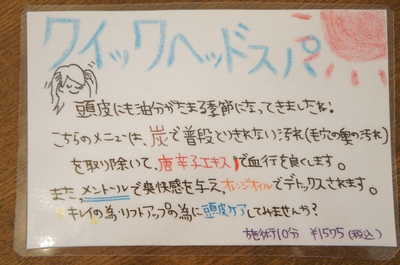 クイックヘッドスパ
頭皮にも油分がたまる季節になってきましたね!
こちらのメニューは、炭で普段とりきれない汚れ(毛穴の奥の汚れ)
を取り除いて、唐辛子エキスで血行を良くします。
また、メントールで爽快感を与え、オレンジオイルでデトックスされます。
キレイの為・リフトアップの為に頭皮ケアしてみませんか?
施術10分 ¥1575(税込)